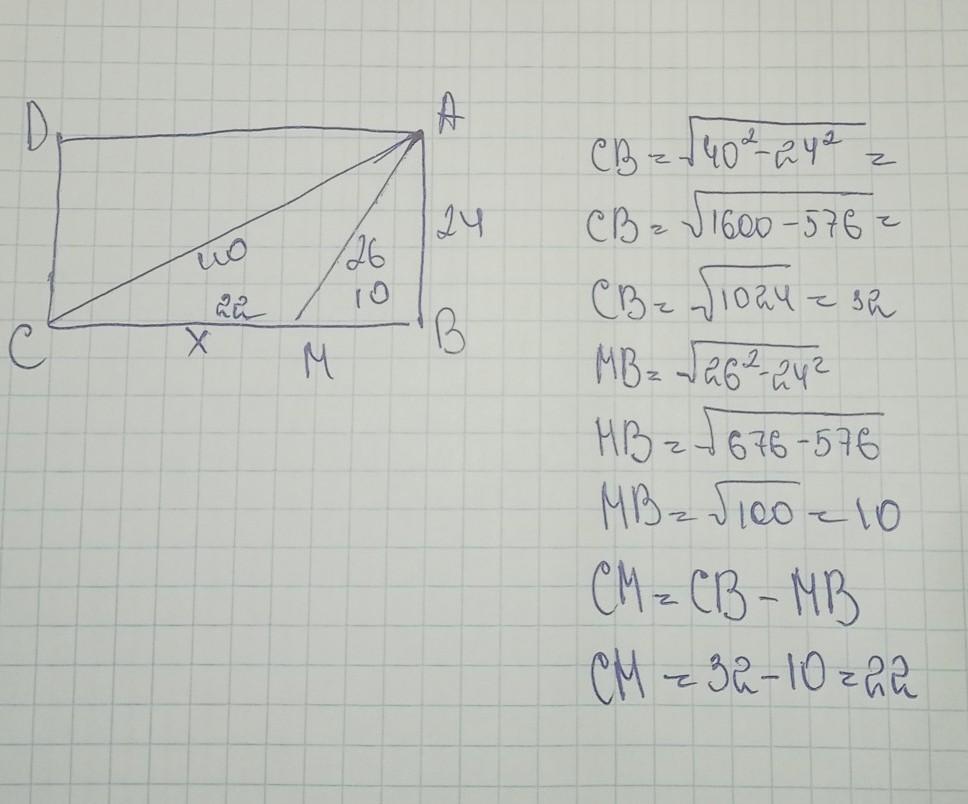 D
A
24
40
26
10
22
C
X
M
B
CB = √40² - 24² =
CB = √1600 - 576 =
CB = √1024 = 32
MB = √26² - 24²
MB = √676 - 576
MB = √100 = 10
CM = CB - MB
CM = 32 - 10 = 22